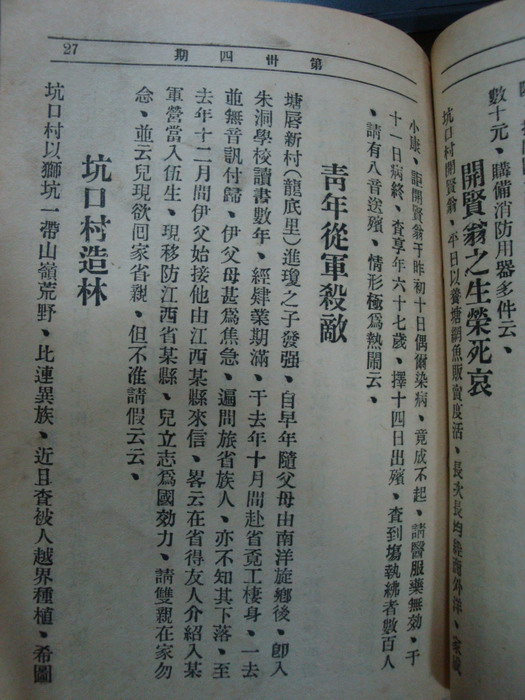 數十元、購備消防用器多件云、
開賢翁之生榮死哀
坑口村開賢翁、平日以養塘網魚販賣度活、長次長均經商外洋、家成
27
第卅四期
小康、詎開賢翁于昨初十日偶爾染病、竟成不起、請醫服藥無効、于
十一日病終、查享年六十七歲、擇十四日出殯、查到塲執紼者數百人
、請有八音送殯、情形極爲熱鬧云、
靑年從軍殺敵
塘唇新村（龍底里）進瓊之子發强、自早年隨父母由南洋旋鄉後、卽入
朱洞學校讀書數年、經肄業期滿、于去年十月間赴省覓工棲身、一去
並無音訊付歸、伊父母甚爲焦急、遍問旅省族人、亦不知其下落、至
去年十二月間伊父始接他由江西某縣來信、畧云在省得友人介紹入某
軍營當入伍生、現移防江西省某縣、兒立志爲國効力、請雙親在家勿
念、並云兒現欲囘家省親、但不准請假云云、
坑口村造林
坑口村以獅坑一帶山嶺荒野、比連異族、近且查被人越界種植、希圖